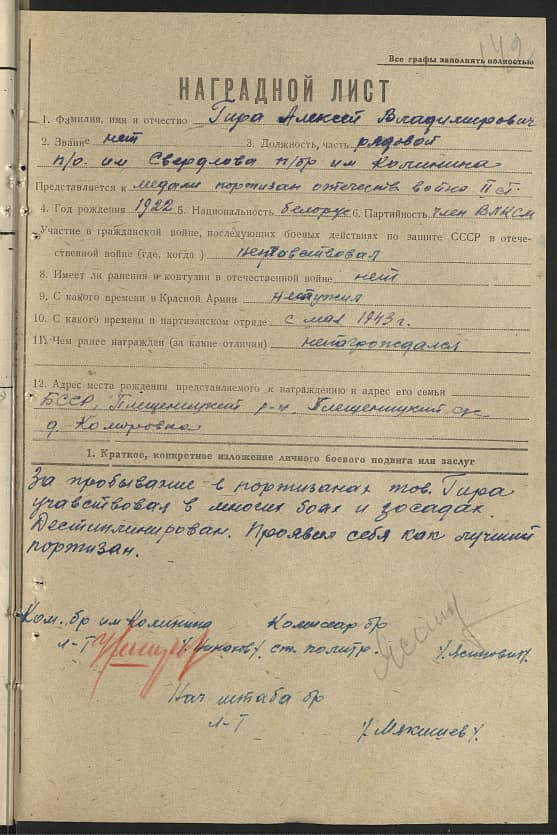 149
Все графы заполнять полностью
НАГРАДНОЙ ЛИСТ
1. Фамилия, имя и отчество Гира Алексей Владимирович
2. Звание нет 3. Должность, часть рядовой
п/о. им Свердлова п/бр им Калинина
Представляется к медали портизан отечеств война II ст.
4. Год рождения 1922 5. Национальность белорус 6. Партийность член ВЛКСМ
Участие в гражданской войне, последующих боевых действиях по защите СССР в отече-
ственной войне (где, когда) неучавствовал
8. Имеет ли ранения и контузии в отечественной войне нет
9. С какого времени в Красной Армии неслужил
10. С какого времени в партизанском отряде с мая 1943 г.
11. Чем ранее награжден (за какие отличия) ненагрождался
12. Адрес места рождения представляемого к награждению и адрес его семьи
БССР, Плещеницкий р-н Плещеницкий с/с
д. Комаровка
1. Краткое, конкретное изложение личного боевого подвига или заслуг
За пробывание в портизанах тов. Гира
учавствовал в многих боях и зосадах.
Десциплинирован. Проявил себя как лучший
портизан.
Ком. бр им Калинина Комиссар бр
л-т ст. политр. /Ясинович/.
Нач штаба бр
л-т /Мякишев/.